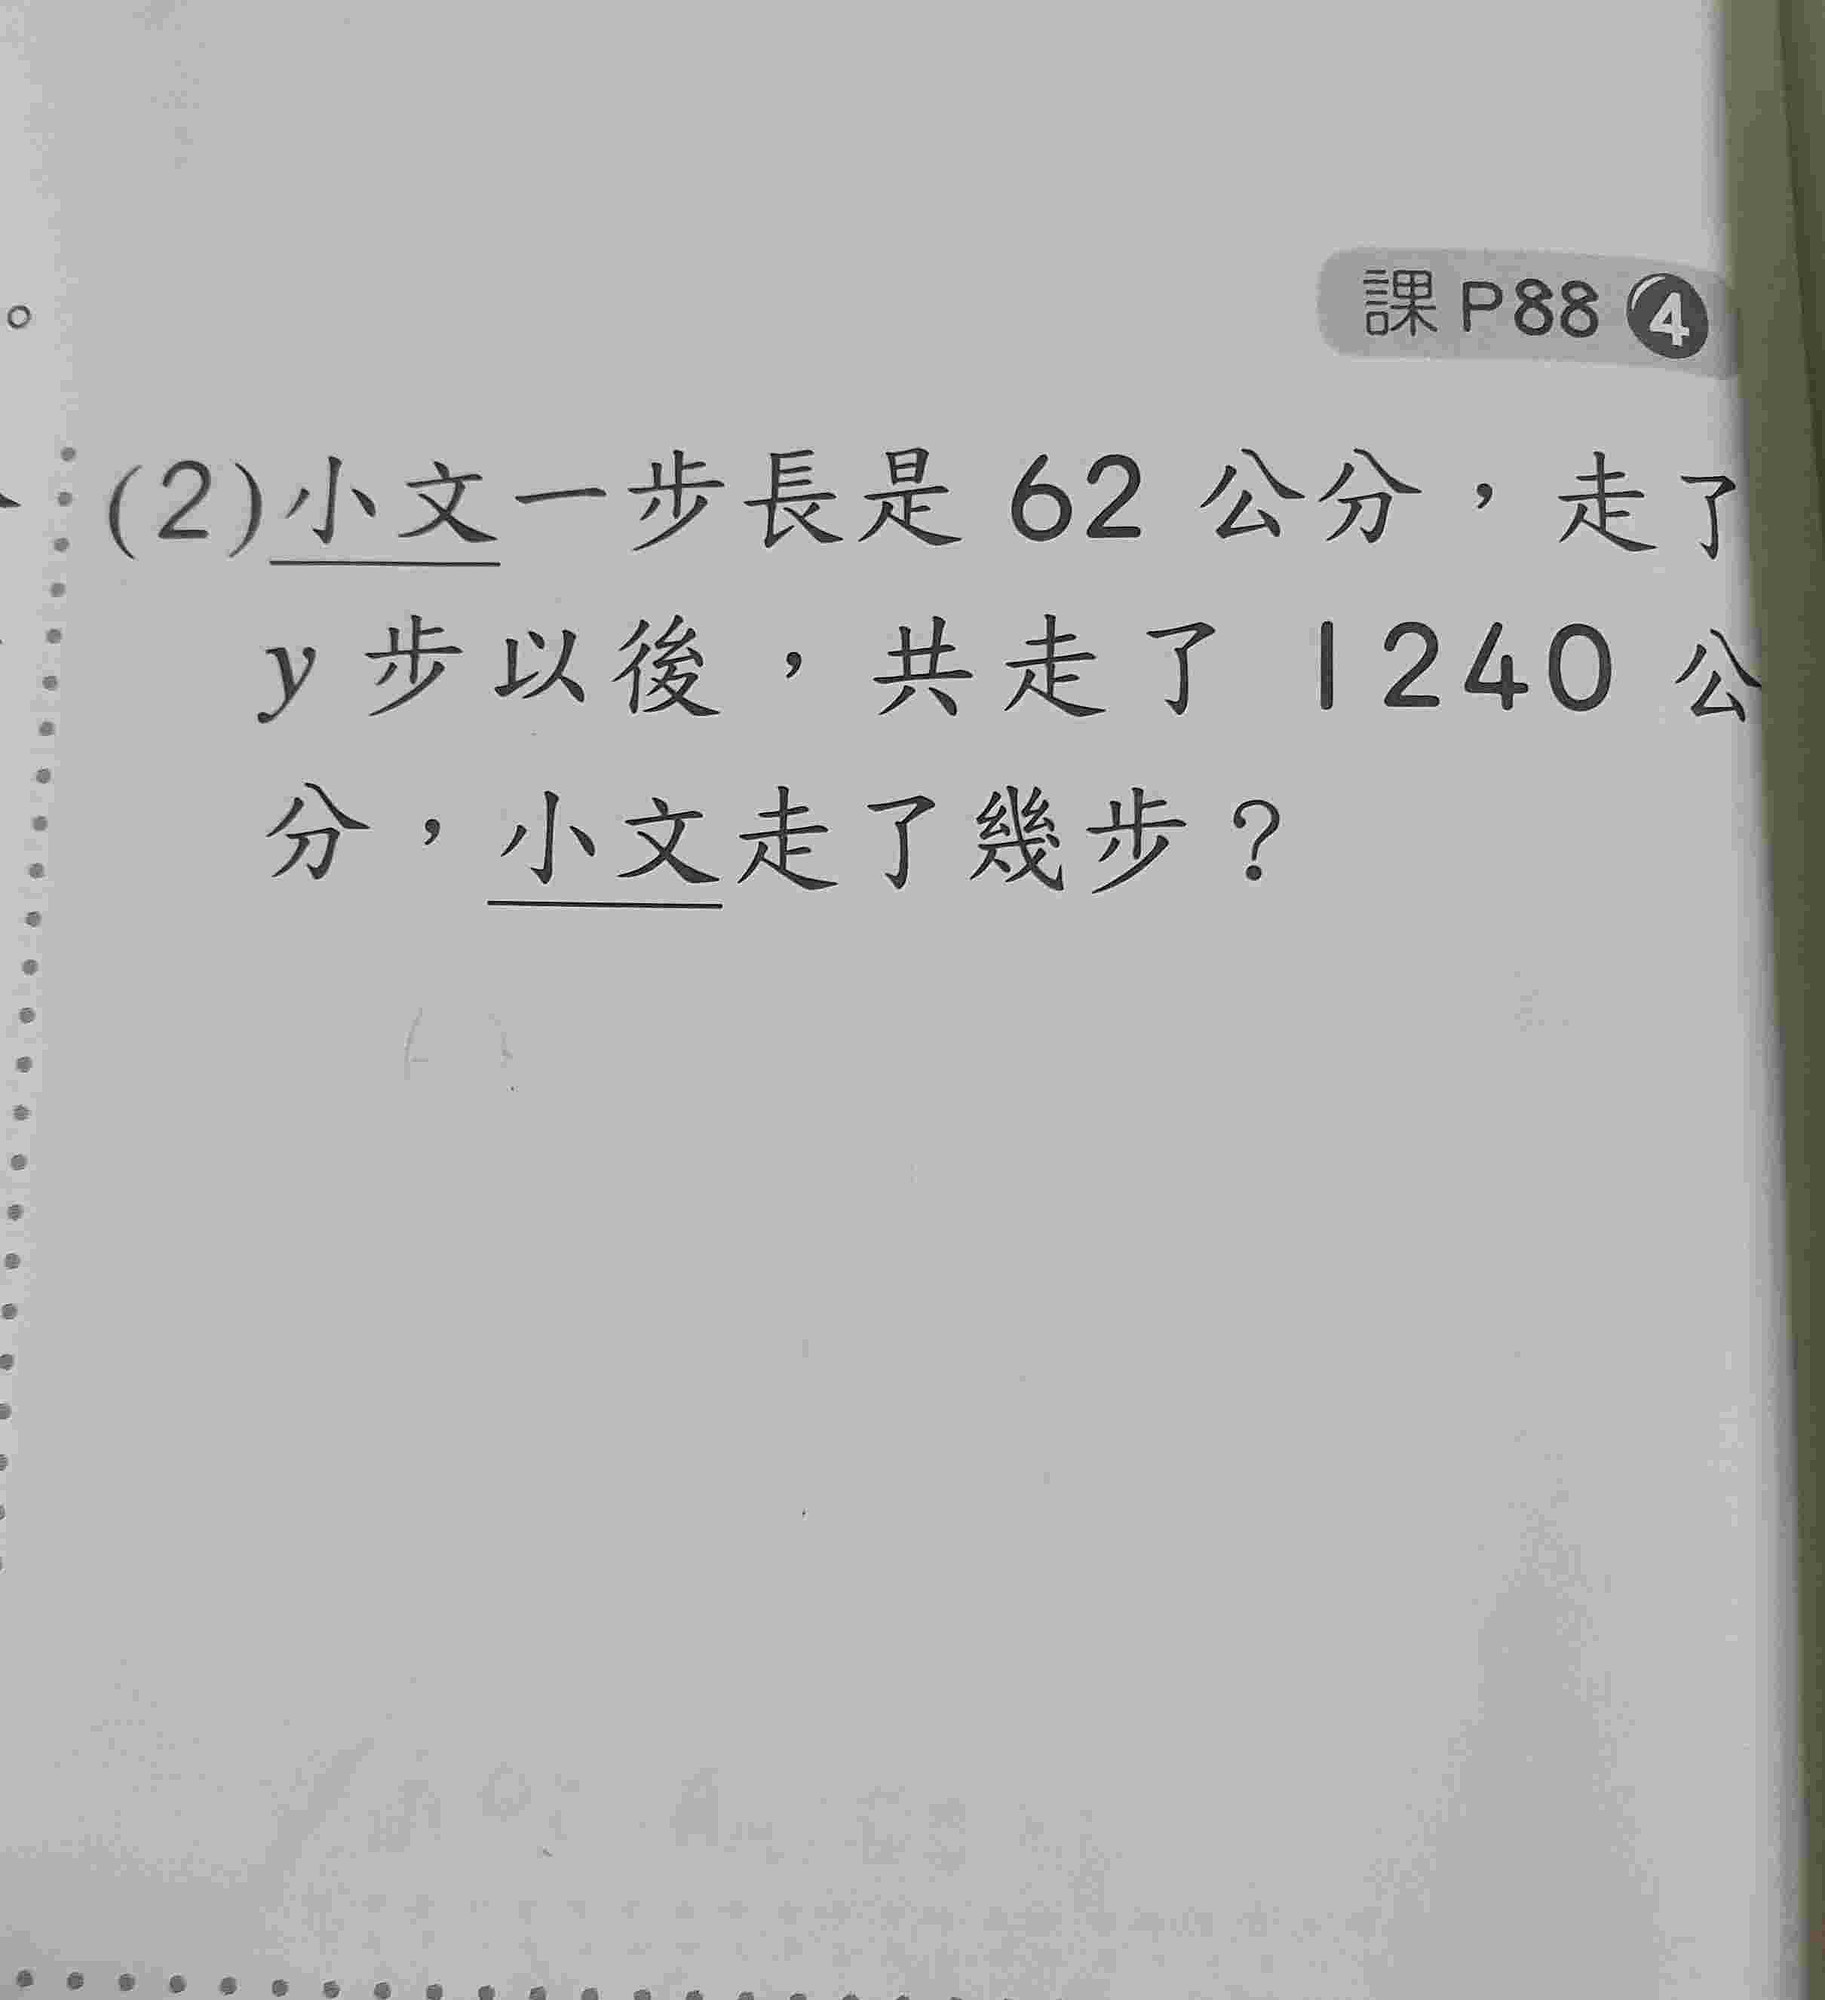 課 P88 4
(2)小文一步長是 62 公分，走了
y 步以後，共走了 1240 公
分，小文走了幾步？